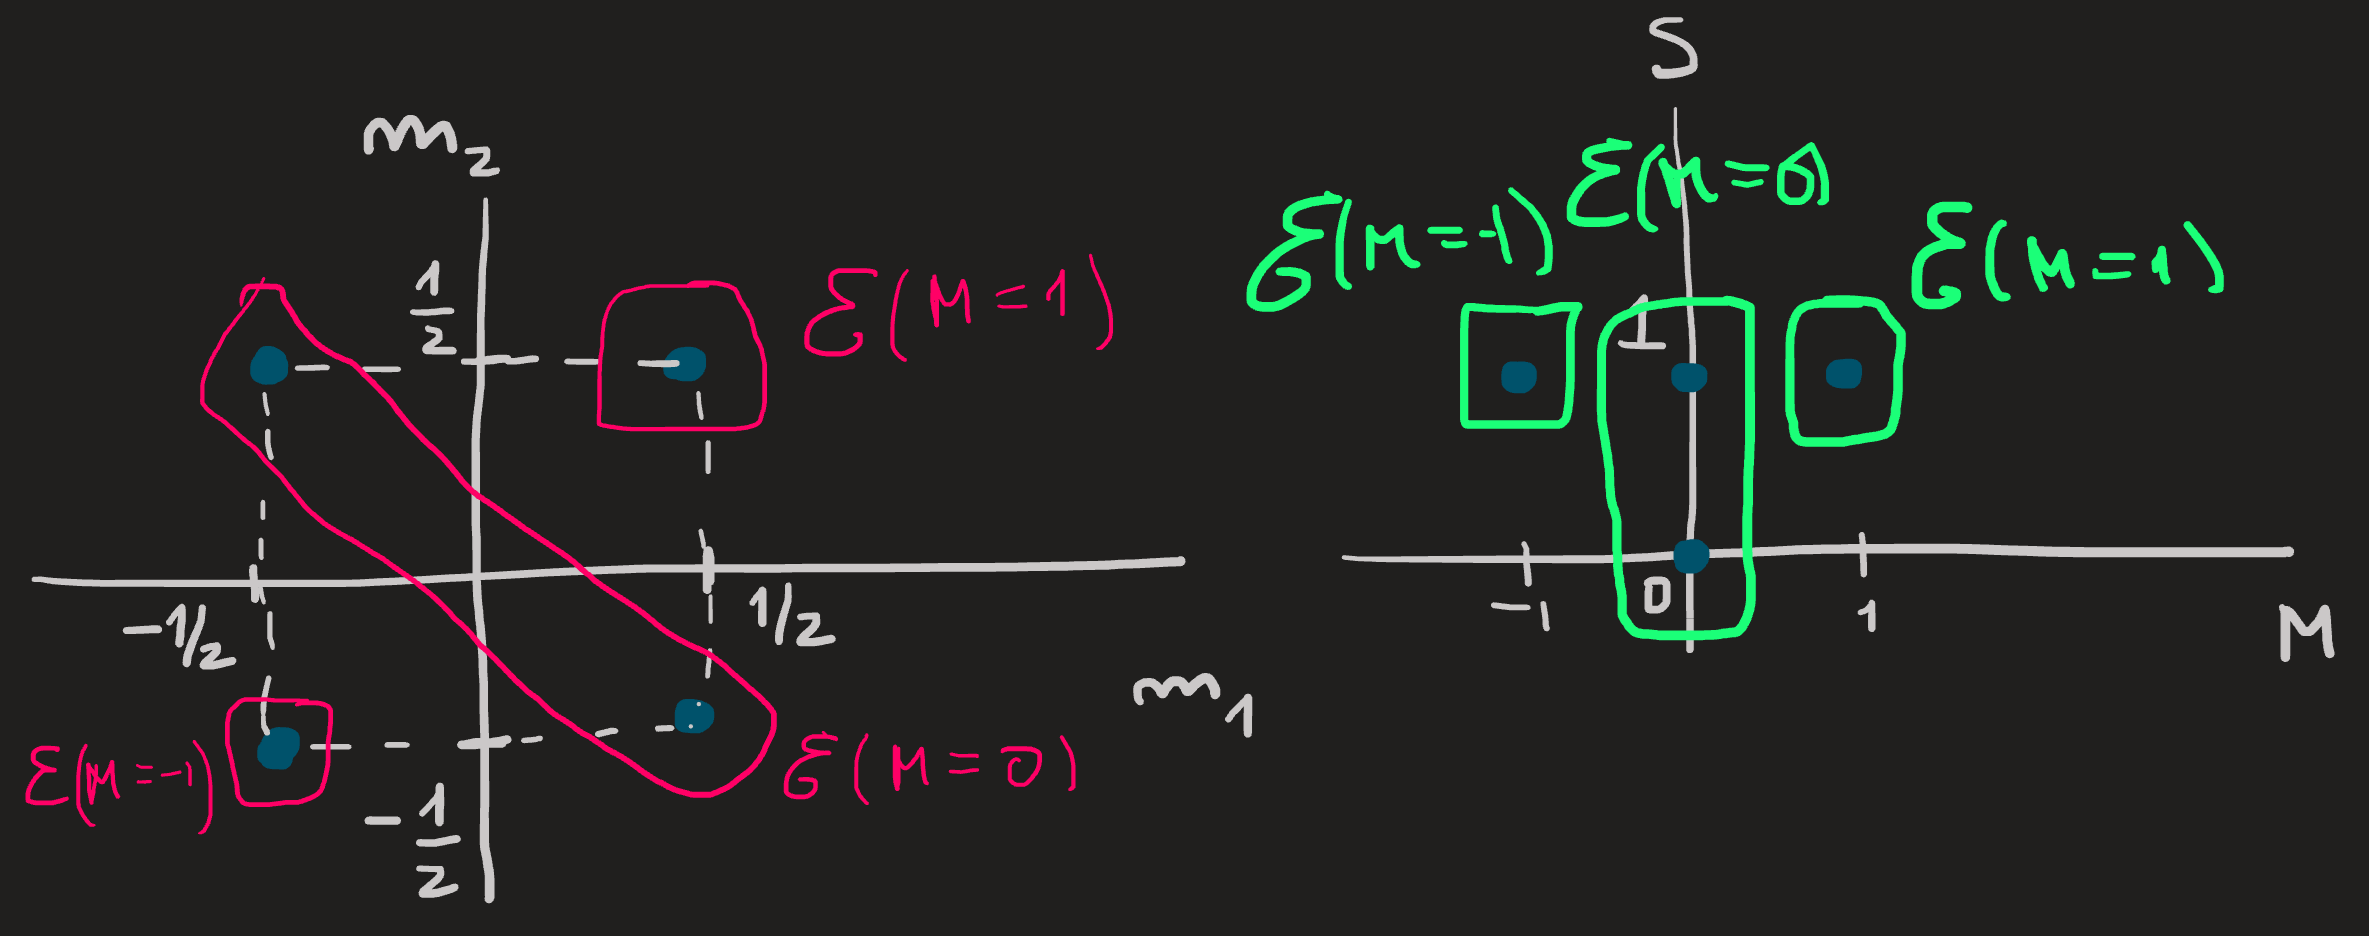 m₂
1/2
ℰ(M=1)
-1/2
1/2
m₁
ℰ(M=-1)
ℰ(M=0)
-1/2
S
ℰ(M=0)
ℰ(M=-1)
ℰ(M=1)
1
-1
0
1
M